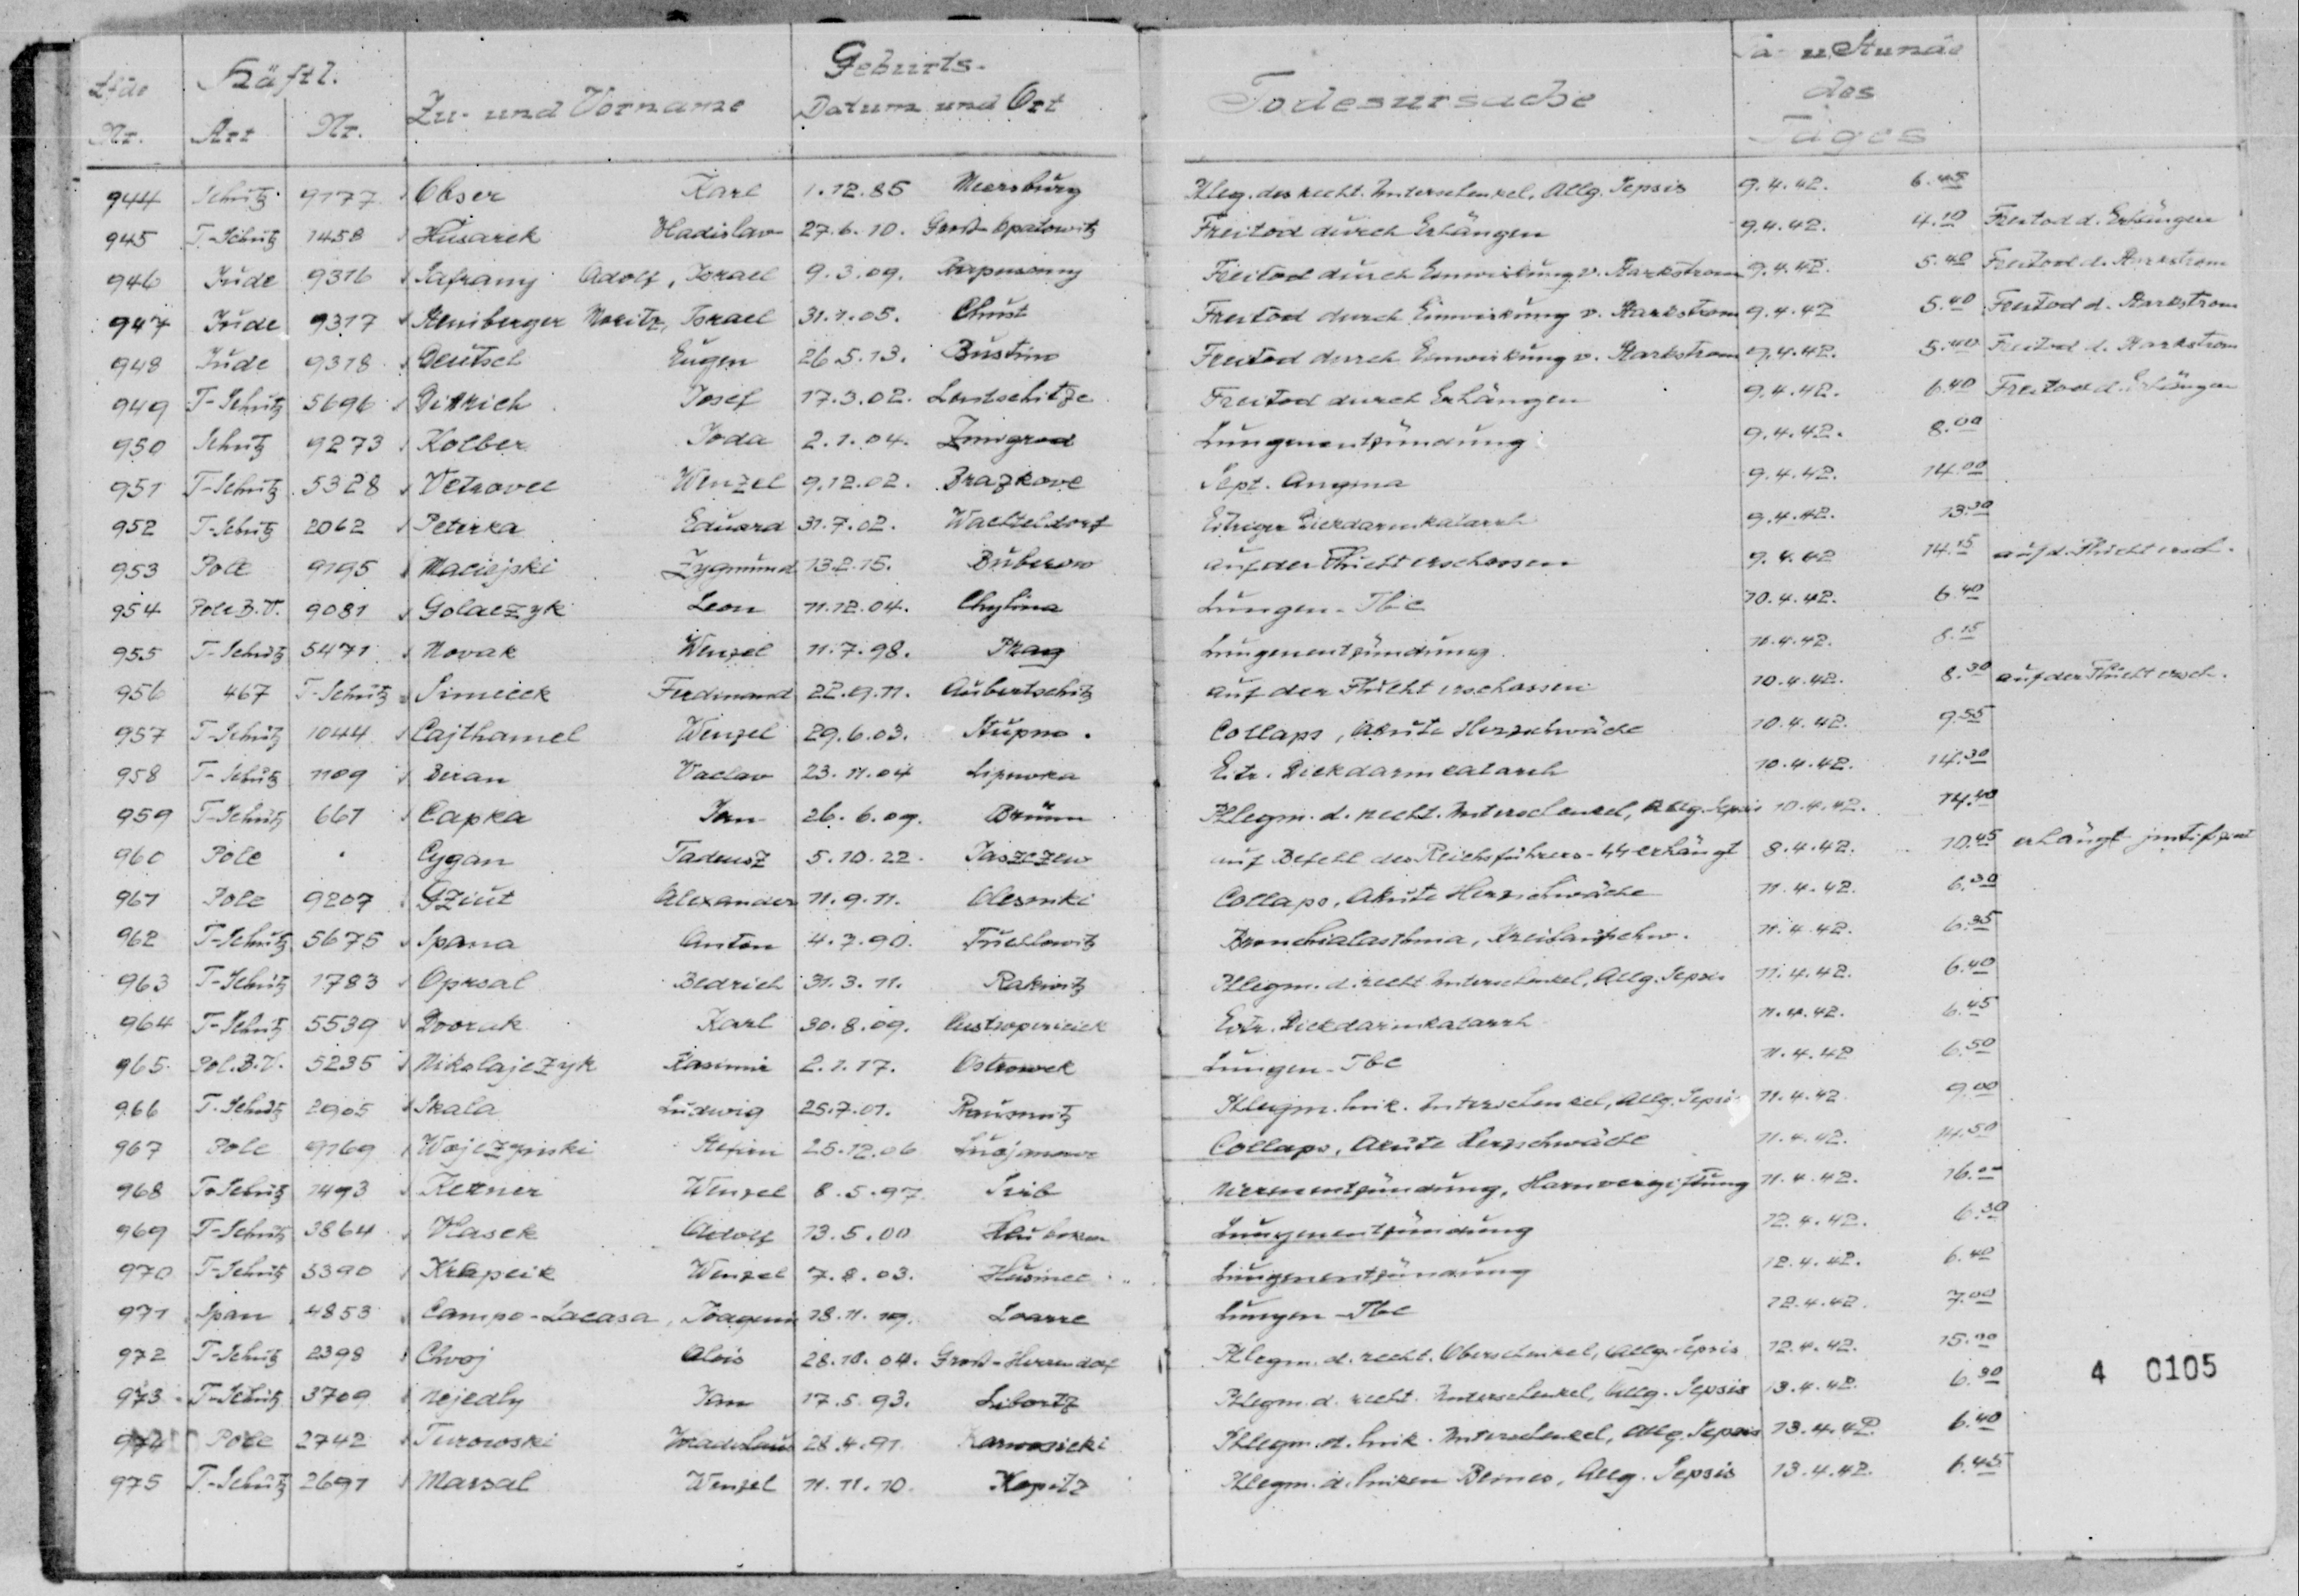 Lfde Häftl. Zu- und Vorname Geburts- Todesursache u Stunde
Nr. Art Nr. Datum und Ort des
Tages
944 Schutz 9177 Obser Karl 1.12.85 Meersburg Phleg. des recht. Unterschenkel, Allg. Sepsis 9.4.42. 6.45
945 T-Schutz 1458 Husarek Wladislav 27.6.10. Groß-Opatowitz Freitod durch Erhängen 9.4.42. 4.10 Freitod d. Erhängen
946 Jude 9316 Safrany Adolf, Israel 9.3.09. Freitod durch Einwirkung v. Starkstrom 9.4.42. 5.40 Freitod d. Starkstrom
947 Jude 9317 Steinberger Moritz, Israel 31.1.05. Chust Freitod durch Einwirkung v. Starkstrom 9.4.42 5.40 Freitod d. Starkstrom
948 Jude 9318 Deutsch Eugen 26.5.13. Bustino Freitod durch Einwirkung v. Starkstrom 9.4.42. 5.40 Freitod d. Starkstrom
949 T-Schutz 5696 Dittrich Josef 17.3.02. Lautschitze Freitod durch Erhängen 9.4.42. 6.40 Freitod d. Erhängen
950 Schutz 9273 Kolber Joda 2.1.04. Zmigrod Lungenentzündung 9.4.42. 8.00
951 T-Schutz 5328 Vetrovec Wenzel 9.12.02. Brazkove Sept. Angina 9.4.42. 14.00
952 T-Schutz 2062 Peterka Eduard 31.7.02. Wachteldorf Eitriger Dickdarmkatarrh 9.4.42. 13.30
953 Pole 9195 Maciejski Zygmund 13.2.15. Buberow auf der Flucht erschossen 9.4.42 14.15 auf d. Flucht ersch.
954 Pole B.V. 9081 Golaczyk Leon 11.12.04. Chylina Lungen-Tbc 10.4.42. 6.40
955 T-Schutz 5471 Novak Wenzel 11.7.98. Prag Lungenentzündung 10.4.42. 8.15
956 467 T-Schutz Simecek Ferdinand 22.9.11. Aubertschitz auf der Flucht erschossen 10.4.42. 8.30 auf der Flucht ersch.
957 T-Schutz 1044 Cajthamel Wenzel 29.6.03. Stupno. Collaps, Akute Herzschwäche 10.4.42. 9.55
958 T-Schutz 1109 Beran Vaclav 23.11.04 Lipuwka Eitr. Dickdarmcatarrh 10.4.42. 14.30
959 T-Schutz 661 Capka Jan 26.6.09. Brünn Phlegm. d. recht. Unterschenkel, Allg. Sepsis 10.4.42. 14.40
960 Pole Cygan Tadeusz 5.10.22. Jaszczew auf Befehl des Reichsführers-SS erhängt 8.4.42. 10.45 erhängt
961 Pole 9207 Gziut Alexander 11.9.11. Olesnicki Collaps, Akute Herzschwäche 11.4.42. 6.30
962 T-Schutz 5675 Spana Anton 4.7.90. Bronchialasthma, Kreislaufschw. 11.4.42. 6.35
963 T-Schutz 1783 Oprsal Bedrich 31.3.11. Rakwitz Phlegm. d. recht Unterschenkel, Allg. Sepsis 11.4.42. 6.40
964 T-Schutz 5539 Dvorak Karl 30.8.09. Eitr. Dickdarmkatarrh 11.4.42. 6.45
965. Pol.B.V. 5235 Nikolajczyk Kasimir 2.1.17. Ostrowek Lungen-Tbc 11.4.42 6.50
966 T.Schutz 2905 Skala Ludwig 25.7.01. Rausnitz Phlegm. link. Unterschenkel, Allg. Sepsis 11.4.42 9.00
967 Pole 9169 Wojczynski Stefan 25.12.06 Collaps, Akute Herzschwäche 11.4.42. 14.50
968 T-Schutz 1493 Kettner Wenzel 8.5.97. Sirb Nierenentzündung, Harnvergiftung 11.4.42. 16.00
969 T-Schutz 3864 Vlasek Adolf 13.5.00 Lungenentzündung 12.4.42. 6.30
970 T-Schutz 5390 Krapcik Wenzel 7.8.03. Husinec Lungenentzündung 12.4.42. 6.40
971 Span 4853 Campo-Lacasa, Joaquin 18.11.19. Loarre Lungen-Tbc 12.4.42. 7.00
972 T-Schutz 2398 Chvoj Alois 28.10.04. Groß-Herrendorf Phlegm. d. recht. Oberschenkel, Allg. Sepsis 12.4.42. 15.00
973 T-Schutz 3709 Nejedly Jan 17.5.93. Libortz Phlegm. d. recht. Unterschenkel, Allg. Sepsis 13.4.42. 6.30
4 0105
974 Pole 2742 Turowski Wladislaus 28.4.91 Karwosicki Phlegm. d. link. Unterschenkel, Allg. Sepsis 13.4.42. 6.40
975 T-Schutz 2691 Marsal Wenzel 11.11.10. Kopitz Phlegm. d. linken Beines, Allg. Sepsis 13.4.42. 6.45